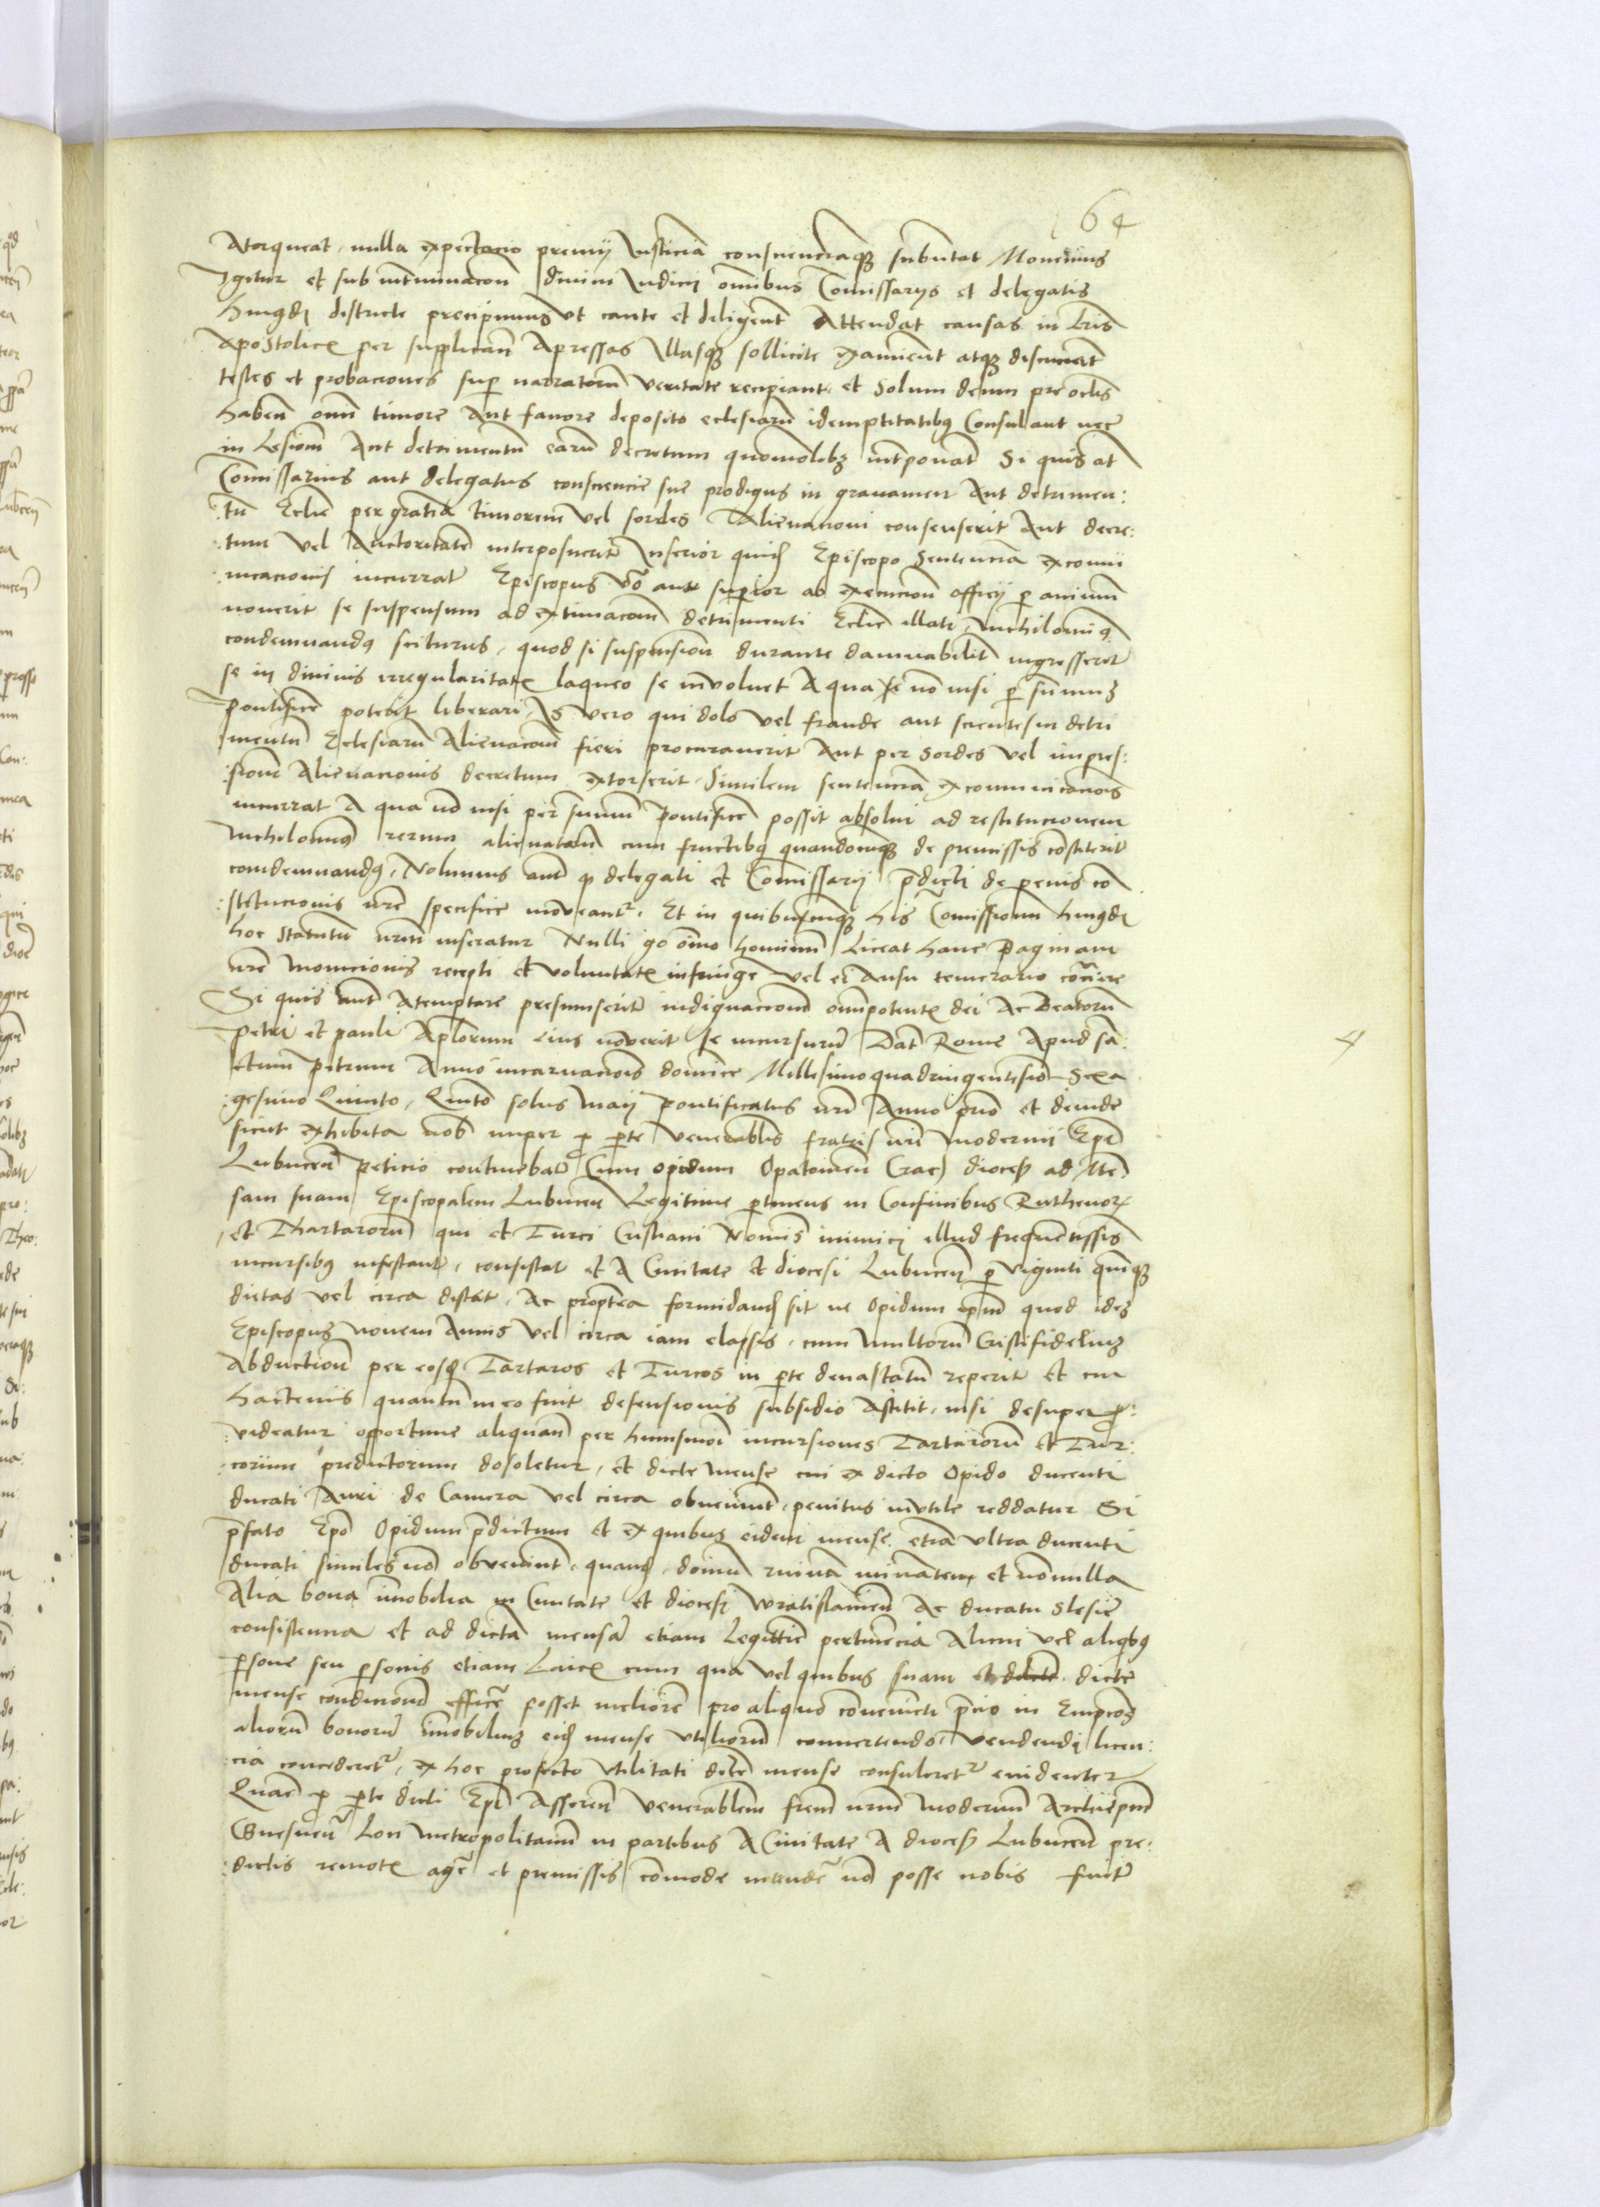 64
Atorqueat, nulla expectacio premii Iusticiã conscienciamqȝ subũtat Monemus
Igitur et sub intminacon̄ diuini Iudicii om̄ibus Com̄issariis et delegatis
districte precipimus Vt caute et deligent Attendãt causas in lr̄is
Apostolicꝭ per supplican̄ Apressas Illasqȝ sollicite examinent atqȝ discuciãt
testes et probaciones suꝑ narratorũ veritate recipiant et Solum deum pre oclis
haben̄ om̄i timore Aut fauore deposito eclesiarũ idemptitatibꝫ Consulant nec
in Lesionẽ Aut detrimentũ earũ decretum quomolibꝫ int̄ponãt Si quis at̃
Com̄issarius aut delegatus consciencie sue prodigus in grauamen Aut detrimen:
:tũ Ecl̄ie per gratiã timorem vel sordes Alienacioni consenserit Aut decre:
:tum vel Auctoritatẽ interposuerit Inferior quidẽ Episcopo Sentenciã excomũi
:nicacionis incurrat Episcopus V̄o aut suꝑior ab execucion̄ officii ꝑ annum
nouerit se suspensum ad extimacionẽ detrimenti Ecl̄ie illati Nichilominꝰ
condemnandꝰ sciturus, quod si suspension̄ durante damnabilit̄ ingesserit
se in diuinis irregularitatꝭ laqueo se inuoluet A qua se nõ nisi ꝑ Sum̄mũ
Pontificẽ poterit liberari, Is vero qui dolo vel fraude aut scientes in detri
mentũ Eclesiarũ Alienacion̄ fieri procurauerit Aut per Sordes vel impres:
:sionẽ Alienacionis decretum extorserit. Similem sentenciã excomunicacionis
incurrat A qua nõ nisi per Sum̄mũ Pontificẽ possit absolui ad restitucionem
Nichilominꝰ rerum alienatarũ cum fructibꝰ quandocũqȝ de premissis cõstiterit
condemnandꝰ, Volumus aut̃ ꝙ delegati et Com̄issarii p̄dicti de penis cõ
:stitucionis nr̄e specifice moueantʳ. Et in quibuscũqȝ his Com̄issionũ
hoc statutũ nr̄m inseratur Nulli g̊o om̄ino hominũ liceat hanc Paginam
nr̄e monicionis recepti et voluntatꝭ infringe vel ei ausu temerario cõtraire
Si quis aut̃ Atemptare presumserit indignacionẽ om̄ipotentꝭ dei Ac Beatorũ
Petri et Pauli Apl̄orum eius nouerit se incursurũ Dat̄ Rome Apud sã
:ctum Petrum Anno incarnacionis dom̄ice Millesimo quadringentesimo Sexa
:gesimo Quinto, Quinto Maii Pontificatus nr̄i Anno prio et deinde
sicut exhibita nob̃ nuper ꝓ ꝑte venerabilis fratris nr̄i moderni Epĩ
Lubucen̄ peticio continebat Cum opidum Opatouien̄ Crac̄ dioces̄ ad Mẽ
sam suam Episcopalem Lubucen̄ Legitime ꝑtinens in Confinibus Ruthenorꝝ
et Thartarorũ qui et Turci Cristiani Nominis inimici illud frequentissimis
incursibꝰ infestant, consistat et A Ciuitate et diocesi Lubucen̄ ꝑ viginti quinqȝ
dietas vel circa distat. Ac propterea formidandũ sit ne Opidum ip̄m quod idẽ
Episcopus nouem Annis vel circa iam elapsis. cum multorũ Cristifideliũ
Abduction̄ per eosdẽ Tartaros et Turcos in ꝑte deuastatũ reperit et cui
hactenus quantũ in eo fuit defensionis subsidio Astitit. nisi desuper ꝓ:
:uideatur oportune aliquan̄ per huiusmõi incursiones Tartarorũ et Tur:
:corum predictorum dosoletur, et dicte mense cui ex dicto Opido ducenti
ducati Auri de Camera vel circa obueniunt, penitus inutile reddatur Si
p̄fato Ep̄o Opidum p̄dictum et ex quibus eidem mense etiã ultra ducenti
ducati similes nõ obueniunt. quandã domũ ruinã minãtem et nõnulla
Alia bona im̄obilia in Ciuitate et diocesi Wratislauien̄ Ac ducatu Slesie
consistenna et ad dictã mensã etiam Legittie pertinencia Alicui vel aliqbꝰ
ꝑsone seu ꝑsonis etiam Laicꝭ cum qua vel quibus suam et dicte
mense condicionẽ efficẽ posset meliorẽ pro aliquo cõuenienti p̄cio in Empcion̄
aliorũ bonorũ im̄obiliũ eidẽ mense Vtiliorũ conuertendo vendendi licen:
:cia concederetʳ, ex hoc profecto Vtilitati dicte mense consuleretʳ euidenter
Quare ꝓ ꝑte dicti Epĩ Asseren̄ venerabilem frem̄ nr̄m modernũ Archiepm̄
Gnesnen̄ Loci Metropolitanũ in partibus A Ciuitate A dioces̄ Lubucen̄ pre:
:dictis remotꝭ agẽ et premissis cõmode intendẽ nõ posse nobis fuit